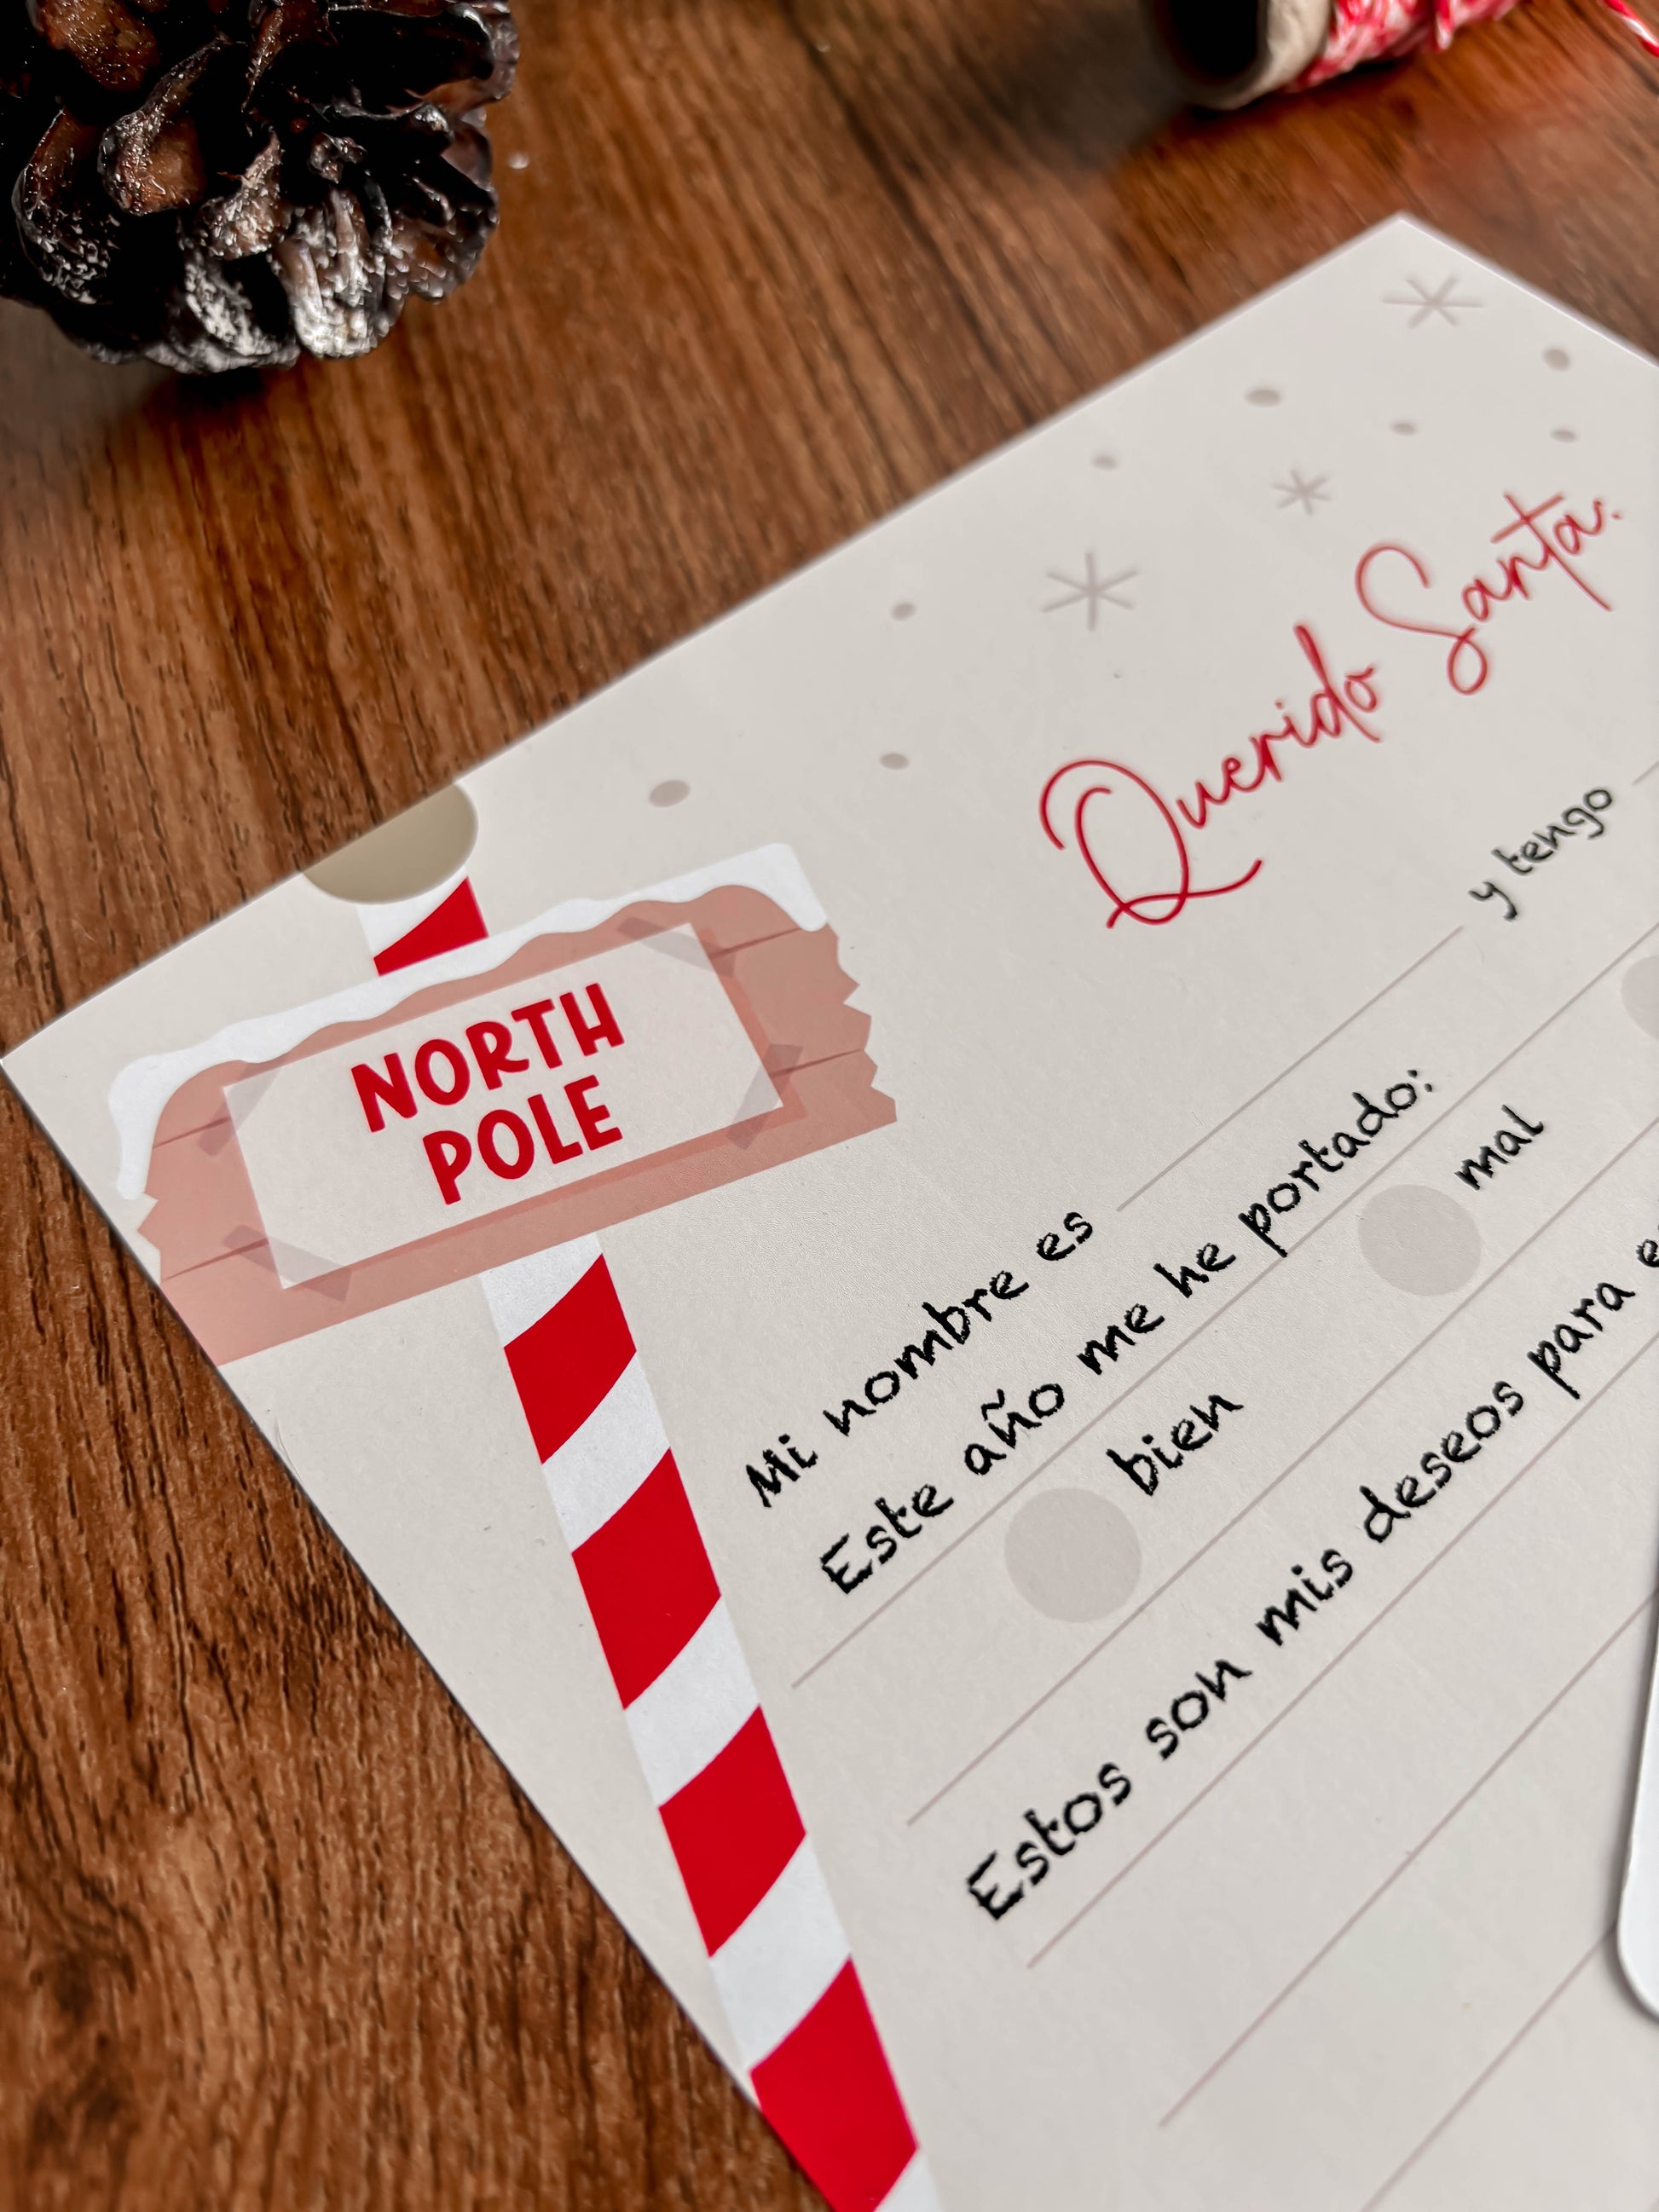 Querido Santa:
NORTH
POLE
Mi nombre es y tengo
Este año me he portado:
bien mal
Estos son mis deseos para